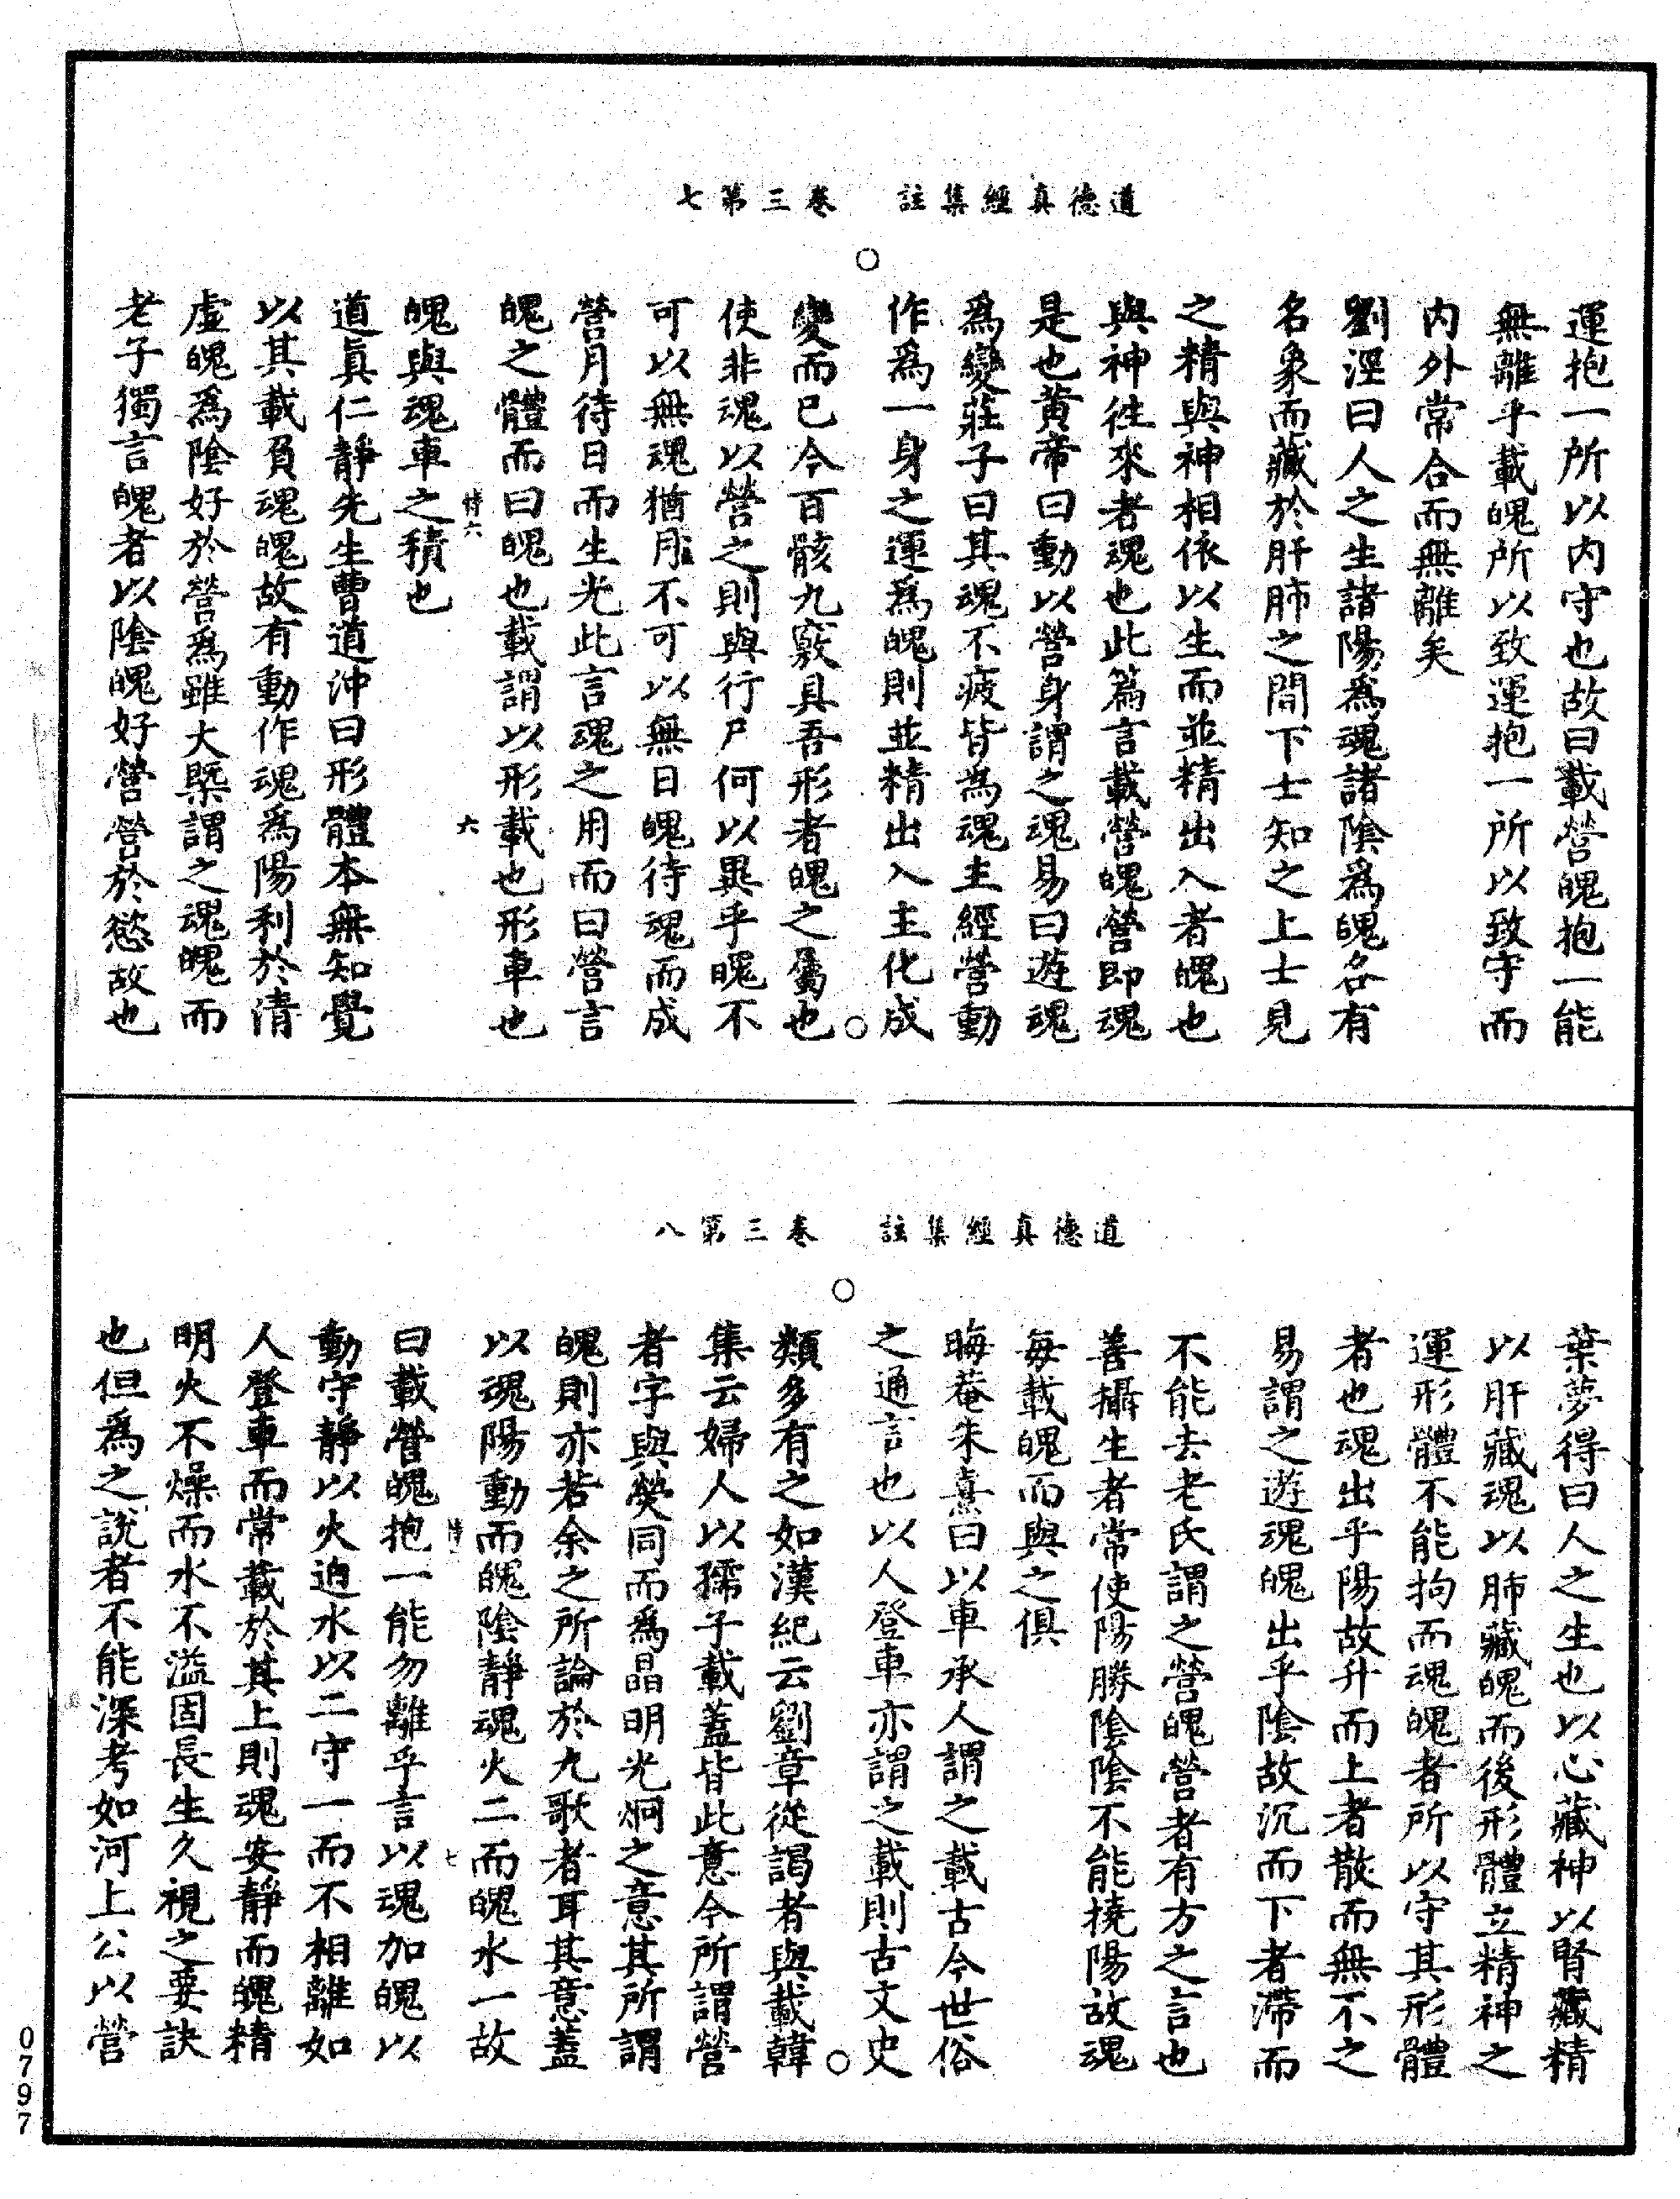 道德真經集註　卷三第七
運抱一所以内守也故曰載營魄抱一能
無離乎載魄所以致運抱一所以致守而
内外常合而無離矣
劉涇曰人之生諸陽爲魂諸陰爲魄各有
名象而藏於肝肺之間下士知之上士見
之精與神相依以生而並精出入者魄也
與神徃來者魂也此篇言載營魄營即魂
是也黄帝曰動以營身謂之魂易曰遊魂
爲變莊子曰其魂不疲皆為魂主經營動
作爲一身之運爲魄則並精出入主化成
變而已今百骸九竅具吾形者魄之屬也
使非魂以營之則與行尸何以異乎魄不
可以無魂猶月不可以無日魄待魂而成
營月待日而生光此言魂之用而曰營言
魄之體而曰魄也載謂以形載也形車也
特六
六
魄與魂車之積也
道真仁靜先生曹道沖曰形體本無知覺
以其載負魂魄故有動作魂爲陽利於清
虛魄爲陰好於營爲雖大槩謂之魂魄而
老子獨言魄者以陰魄好營營於慾故也
道德真經集註　卷三第八
葉夢得曰人之生也以心藏神以腎藏精
以肝藏魂以肺藏魄而後形體立精神之
運形體不能拘而魂魄者所以守其形體
者也魂出乎陽故升而上者散而無不之
易謂之遊魂魄出乎陰故沉而下者滯而
不能去老氏謂之營魄營者有方之言也
善攝生者常使陽勝陰陰不能撓陽故魂
每載魄而與之俱
晦菴朱熹曰以車承人謂之載古今世俗
之通言也以人登車亦謂之載則古文史
類多有之如漢紀云劉章從謁者與載韓
集云婦人以孺子載蓋皆此意今所謂營
者字與熒同而爲晶明光炯之意其所謂
魄則亦若余之所論於九歌者耳其意蓋
以魂陽動而魄陰靜魂火二而魄水一故
七
曰載營魄抱一能勿離乎言以魂加魄以
動守靜以火迫水以二守一而不相離如
人登車而常載於其上則魂安靜而魄精
明火不燥而水不溢固長生久視之要訣
也但爲之說者不能深考如河上公以營
0797